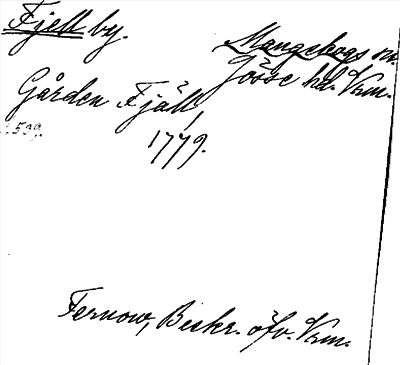 Fjell by.
Mangskogs sn.
Jösse hd. Vrm.
Gården Fjäll,
1779.
Fernow, Beskr. öfv. Vrm.